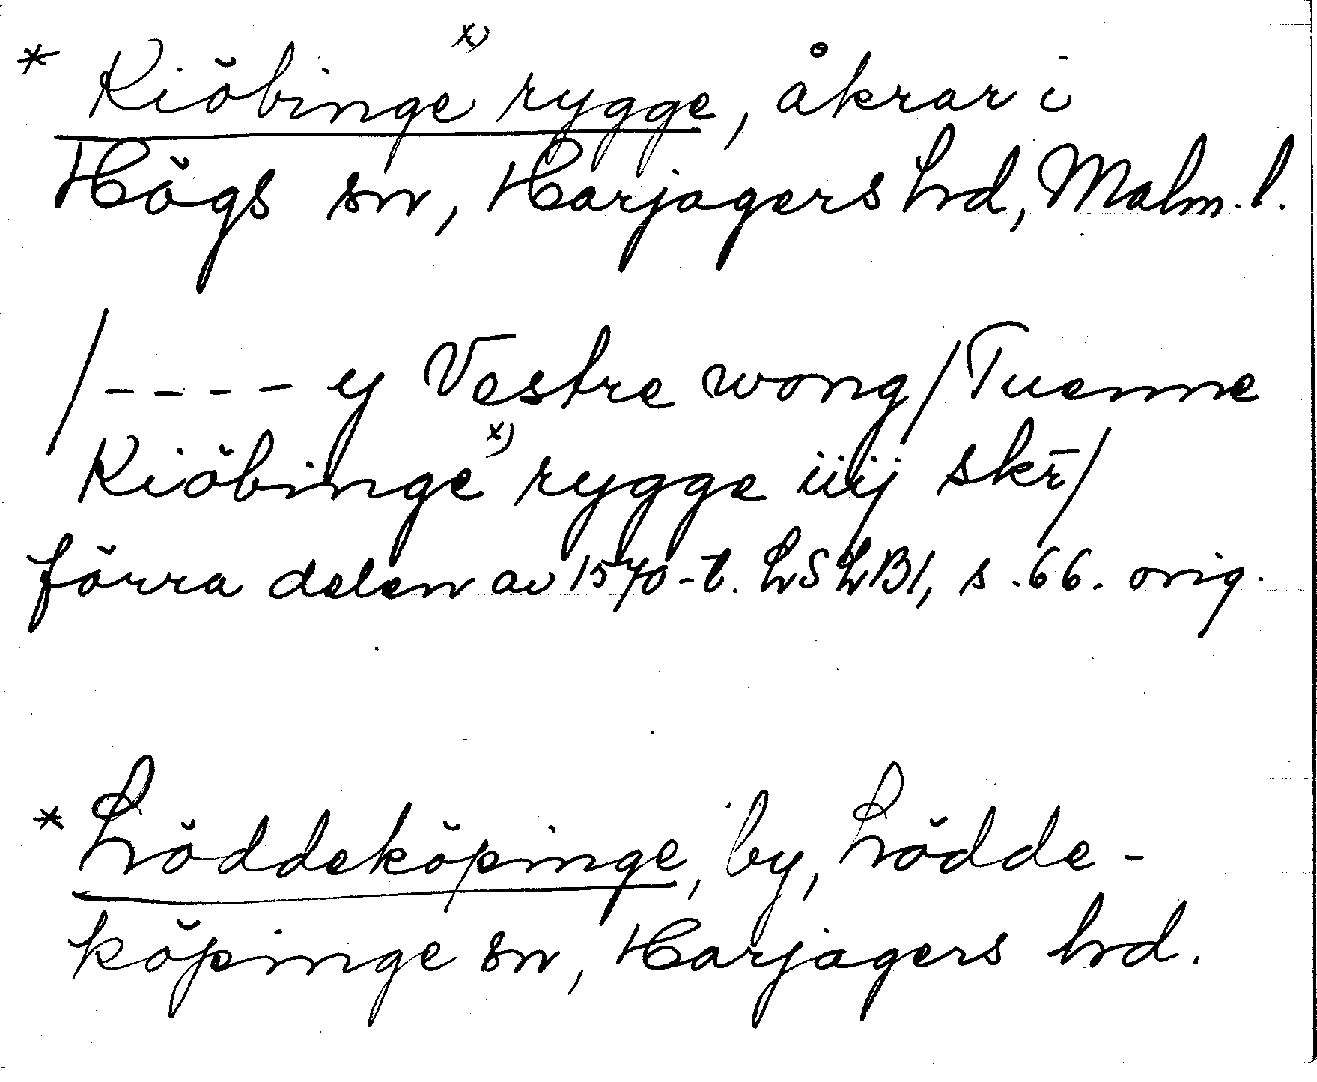 * Kiöbinge x) rygge, åkrar i
Högs sn, Harjagers hd, Malm. l.
/---- y Vestre wong/Tuenne
Kiöbinge x) rygge iiij skr̄/
förra delen av 1570-t. LSLB1, s. 66. orig.
* Löddeköpinge, by, Lödde-
köpinge sn, Harjagers hd.